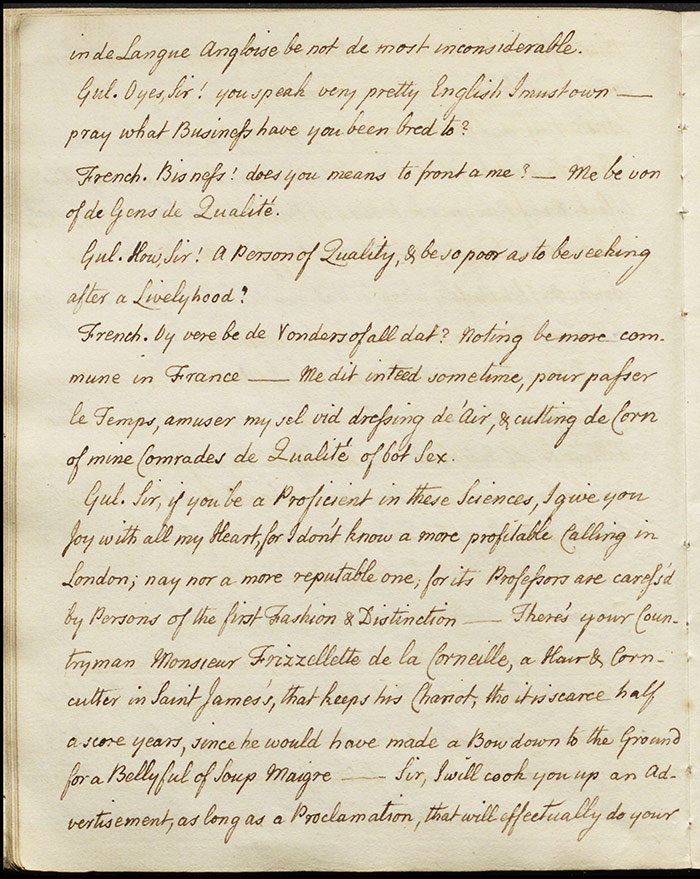 in de Langue Angloise be not de most inconsiderable.
Gul. O yes, Sir! you speak very pretty English I must own —
pray what Business have you been bred to?
French. Bisness! does you means to front a me? — Me be von
of de Gens de Qualité.
Gul. How, Sir! A Person of Quality, & be so poor as to be seeking
after a Livelyhood?
French. Vy vere be de Vonders of all dat? Noting be more com-
mune in France — Me dit inteed sometime, pour passer
le Temps, amuser my sel vid dressing de 'Air, & cutting de Corn
of mine Comrades de Qualité of bot Sex.
Gul. Sir, if you be a Proficient in these Sciences, I give you
Joy with all my Heart, for I don't know a more profitable Calling in
London; nay nor a more reputable one; for its Professors are caress'd
by Persons of the first Fashion & Distinction — There's your Coun-
tryman Monsieur Frizzellette de la Corneille, a Hair & Corn-
cutter in Saint James's, that keeps his Chariot, tho it is scarce half
a score years, since he would have made a Bow down to the Ground
for a Bellyful of Soup Maigre — Sir, I will cook you up an Ad-
vertisement, as long as a Proclamation, that will effectually do your